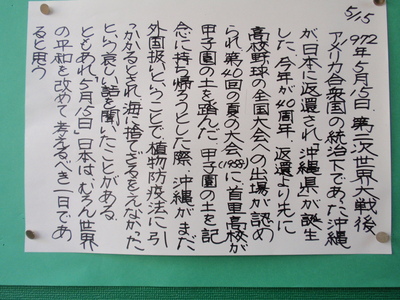 5/15
1972年5月15日、第二次世界大戦後
アメリカ合衆国の統治下であった沖縄
が日本に返還され、沖縄県が誕生
した。今年が40周年 返還より先に
高校野球の全国大会への出場が認め
られ第40回の夏の大会(1958)に首里高校が
甲子園の土を踏んだ 甲子園の土を記
念に持ち帰ろうとした際、沖縄がまだ
外国扱いということで植物防疫法に引
っかかるとされ海に捨てざるをえなかった
という哀しい話を聞いたことがある。
ともあれ「5月15日」日本はむろん世界
の平和を改めて考えるべき一日であ
ると思う